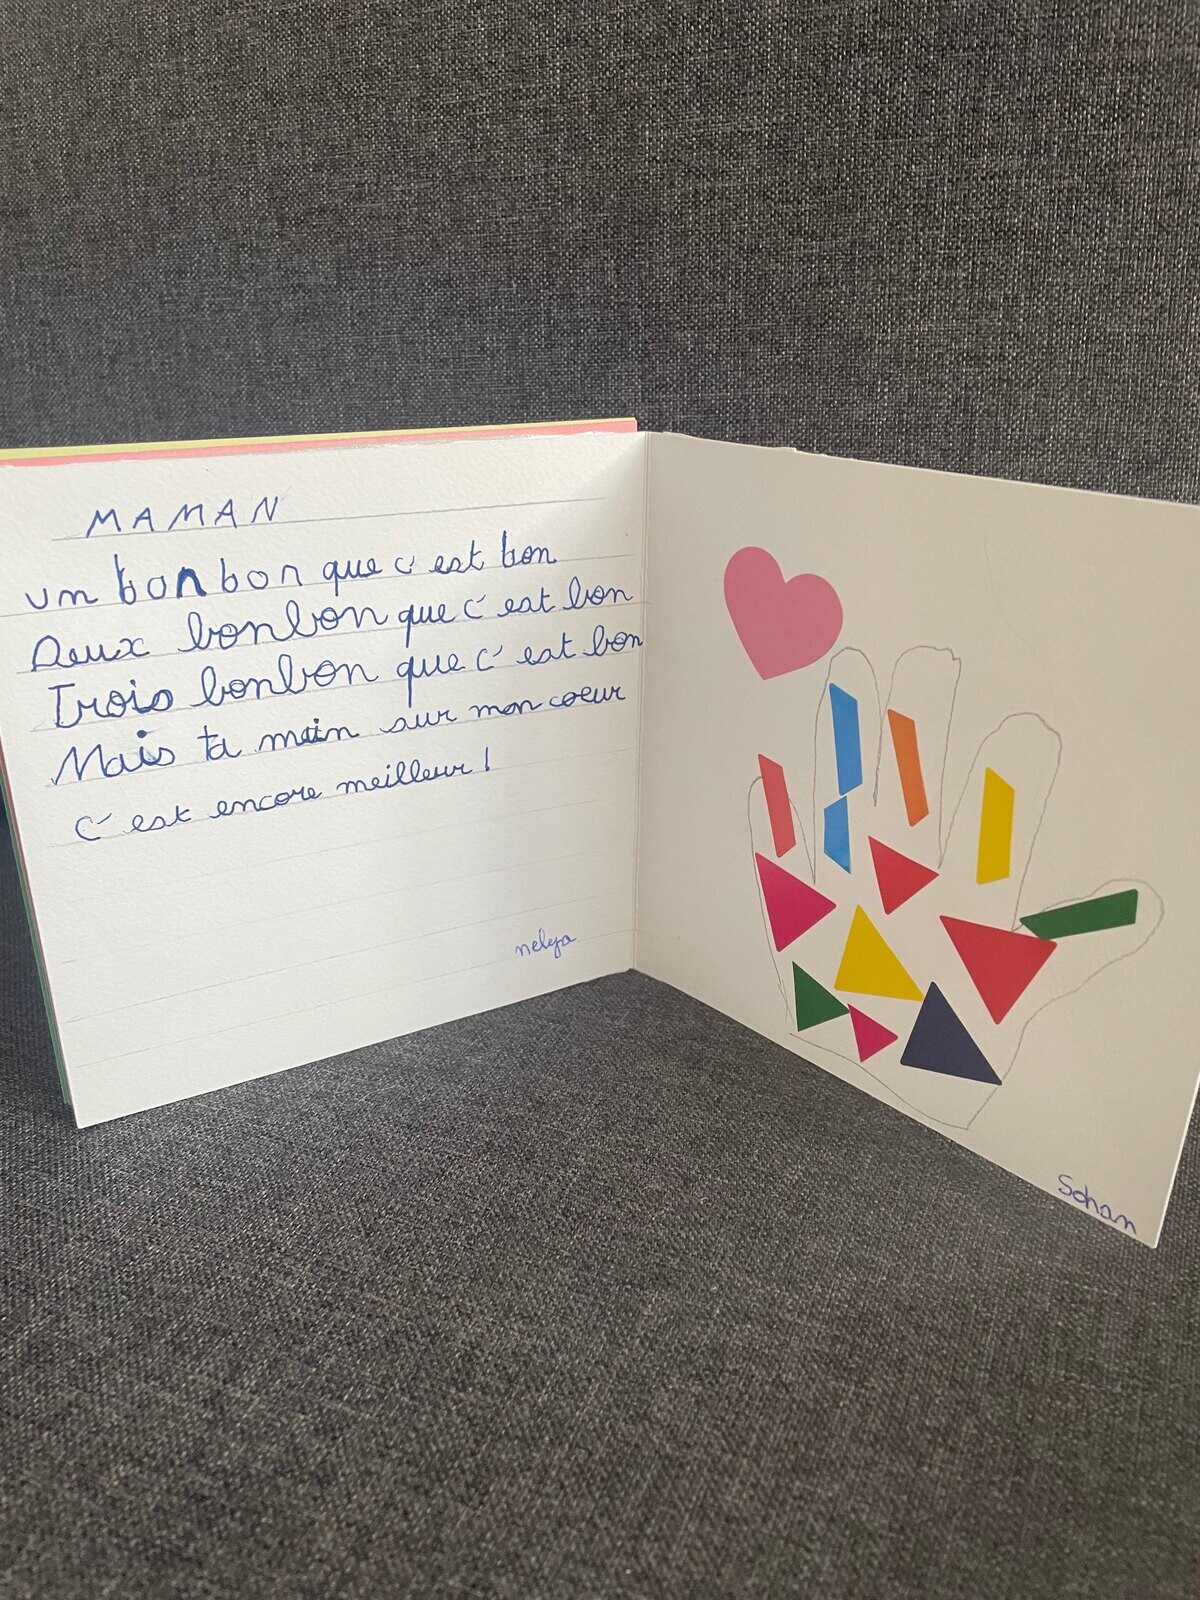 MAMAN
un bonbon que c'est bon
Deux bonbon que c'est bon
Trois bonbon que c'est bon
Mais ta main sur mon coeur
c'est encore meilleur !
nelya
Sohan